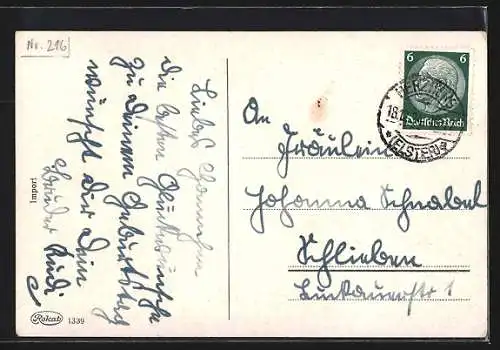 Nr. 216
Liebes Hannchen
die besten Glückwünsche
zu Deinem Geburtstag
wünscht dir Dein
Bruder Rudi
Import
Rokat
1339
6 6
Deutsches Reich
HERZBERG
(ELSTER)
An
Fräulein
Johanna Schnabel
Schlieben
Luckauerstr 1